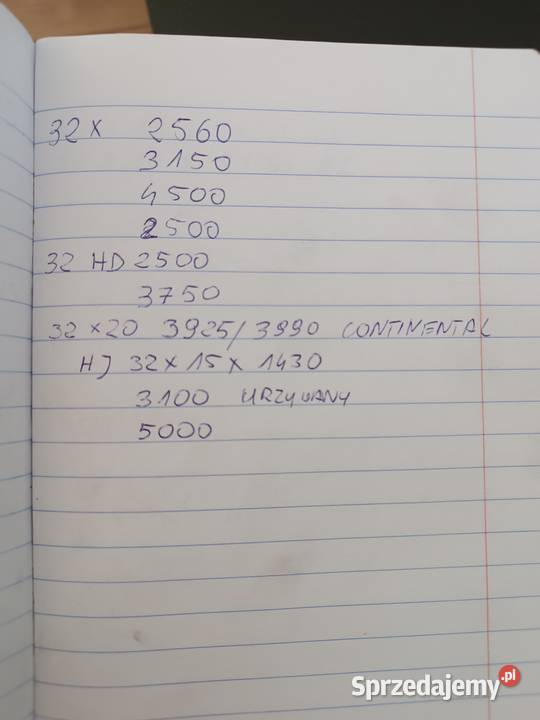 32 x 2560
3150
4500
2500
32 HD 2500
3750
32 x 20 3925/3990 CONTINENTAL
HJ 32 x 15 x 1430
3100 URZYWANY
5000
Sprzedajemy.pl